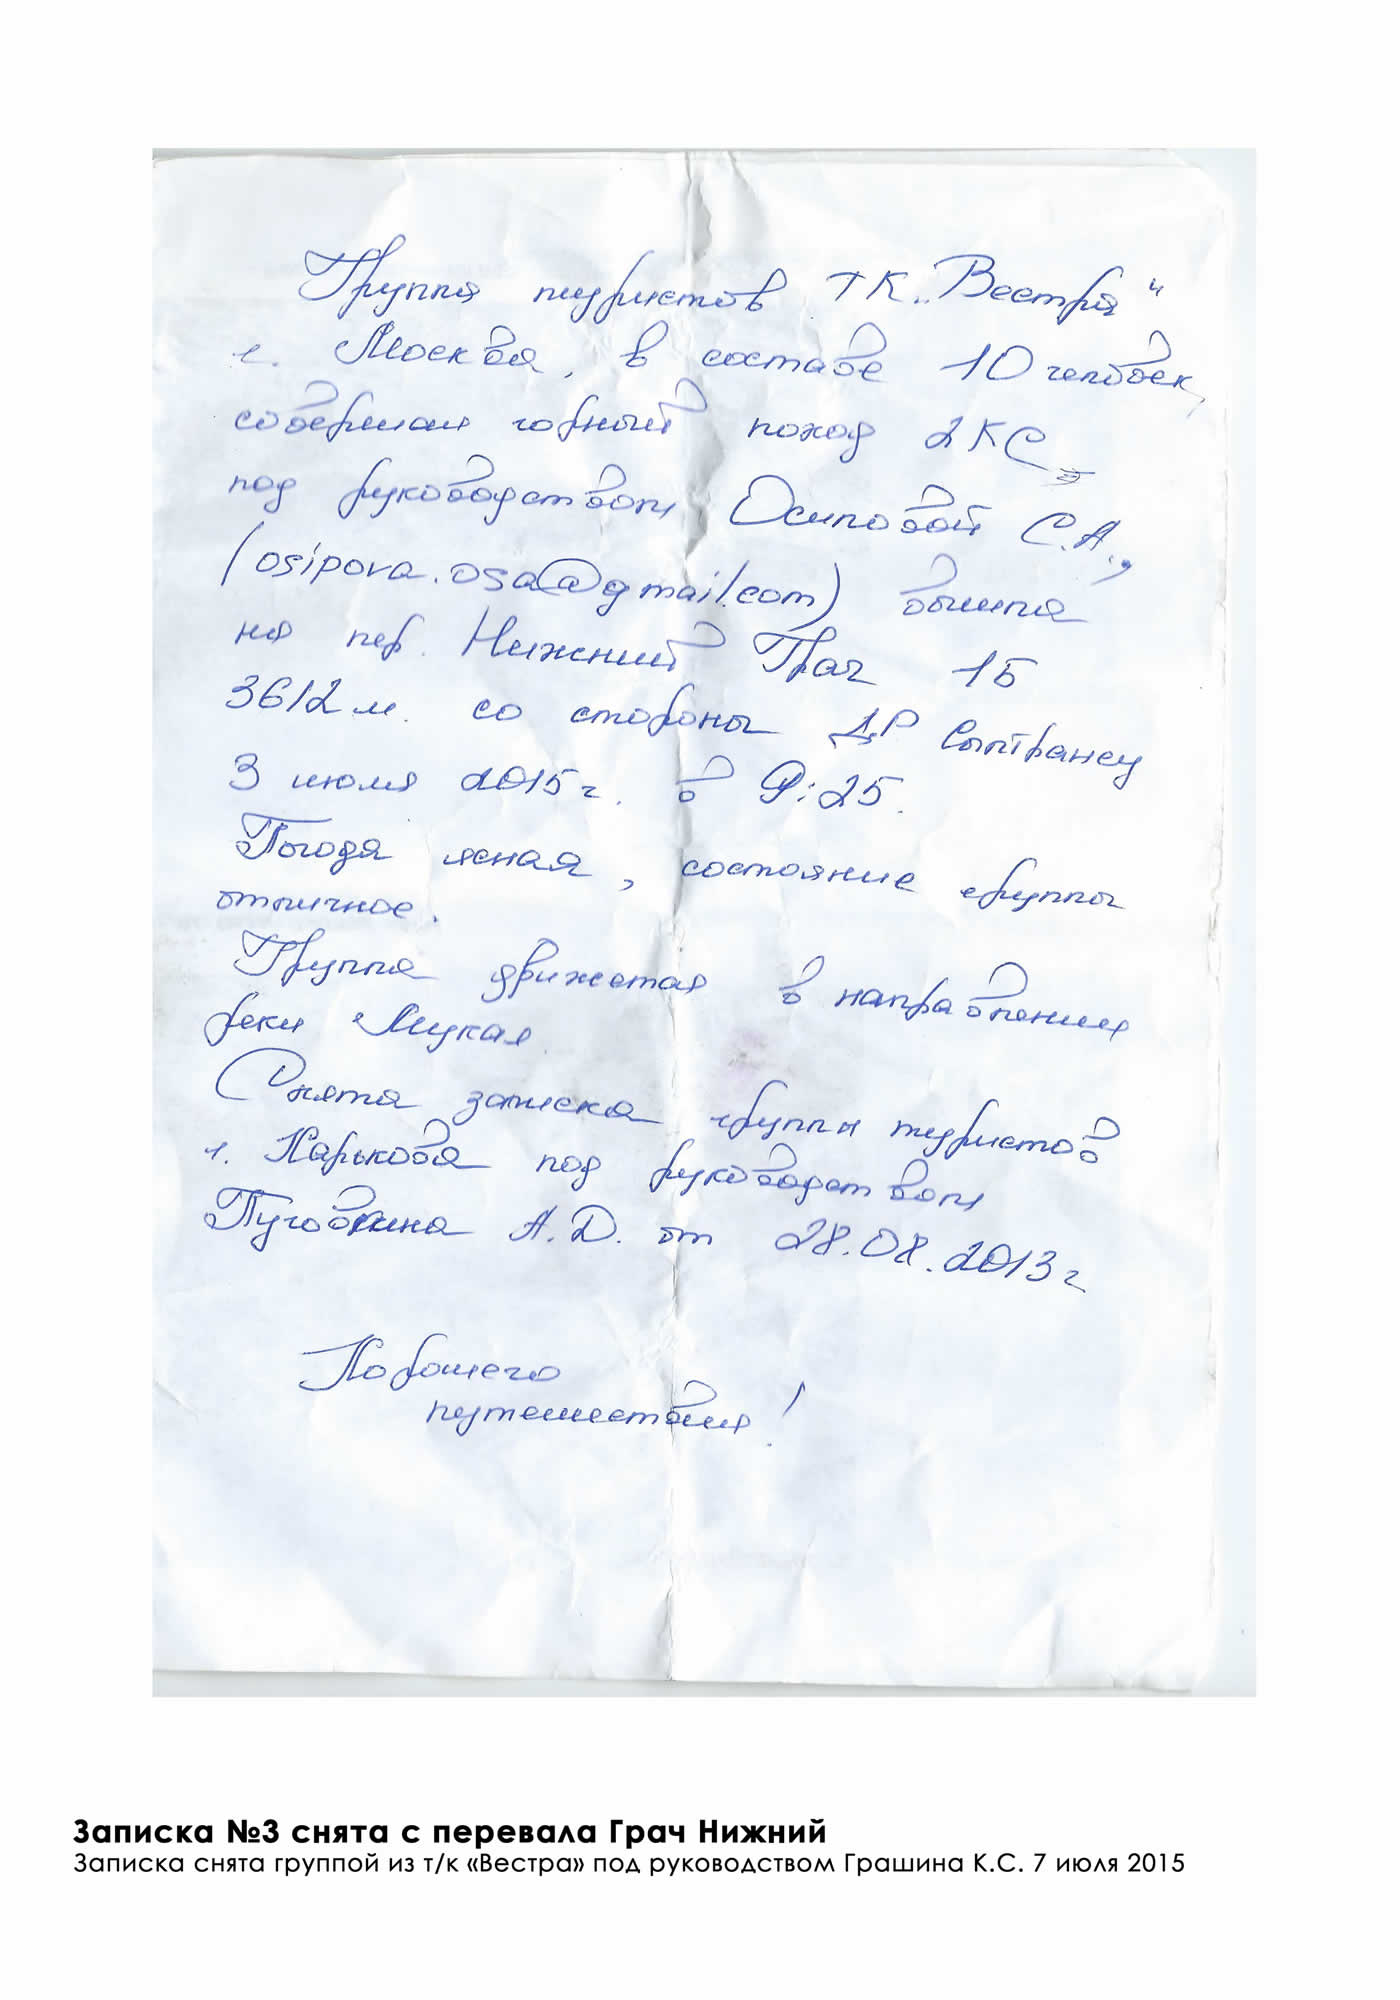 Группа туристов ТК „Вестра“
г. Москва, в составе 10 человек,
совершая горный поход 2КС
под руководством Осиповой С.А.,
(osipova.osa@gmail.com) вышла
на пер. Нижний Грач 1Б
3612 м. со стороны ДР Сылтрансу
3 июля 2015г. в 9:25.
Погода ясная, состояние группы
отличное.
Группа движется в направлении
реки Мукал
Снята записка группы туристов
г. Харькова под руководством
А.Д. от 28.08.2013г
Хорошего
путешествия!
Записка №3 снята с перевала Грач Нижний
Записка снята группой из т/к «Вестра» под руководством Грашина К.С. 7 июля 2015